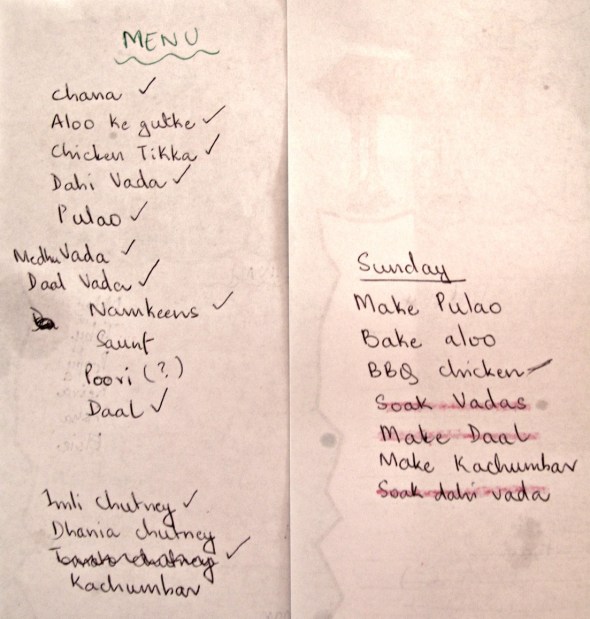 MENU
Chana ✓
Aloo ke gutke ✓
Chicken Tikka ✓
Dahi Vada ✓
Pulao ✓
Medhu Vada ✓
Daal Vada ✓
Namkeens ✓
Saunf
Poori (?)
Daal ✓
Imli chutney ✓
Dhania chutney
Kachumbar
Sunday
Make Pulao
Bake aloo
BBQ chicken ✓
Soak Vadas
Make Daal
Make Kachumbar
Soak dahi vada